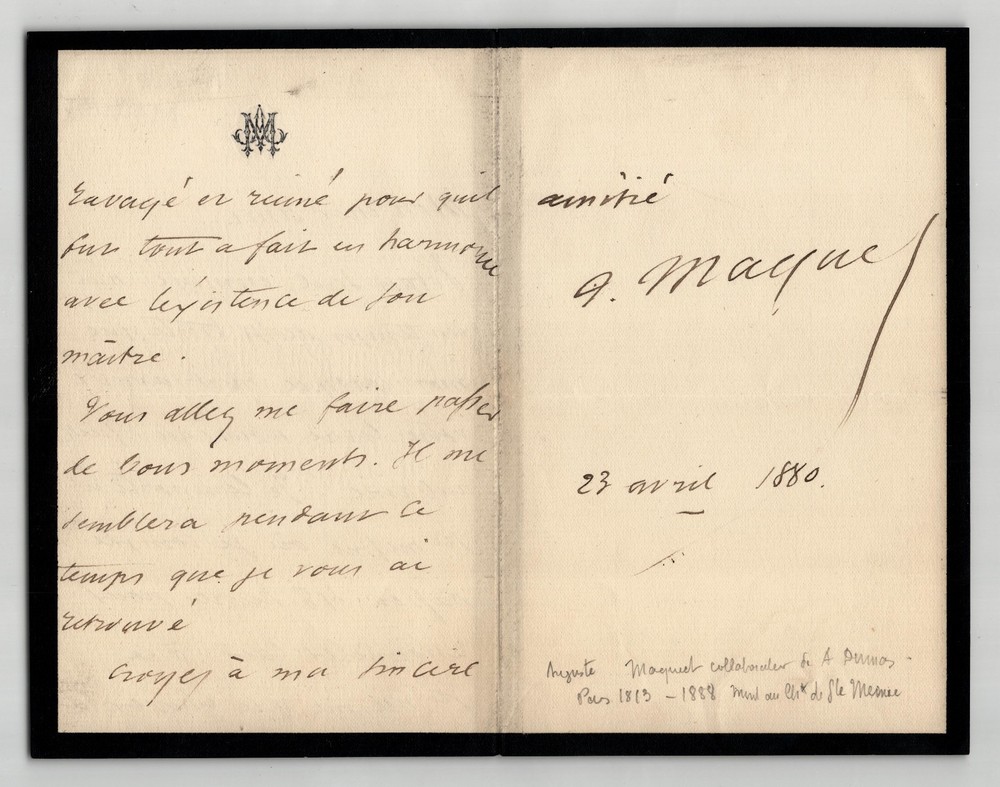 ravagé et ruiné pour quil
fut tout a fait en harmonie
avec l'existence de son
maitre.
Vous allez me faire passer
de bons moments. Il me
semblera pendant ce
temps que je vous ai
retrouvé
Croyez à ma sincere
amitié
A. Maquet
23 avril 1880.
Auguste Maquet collaborateur de A Dumas.
Paris 1813 – 1888 mort au Chx de Ste Mesme